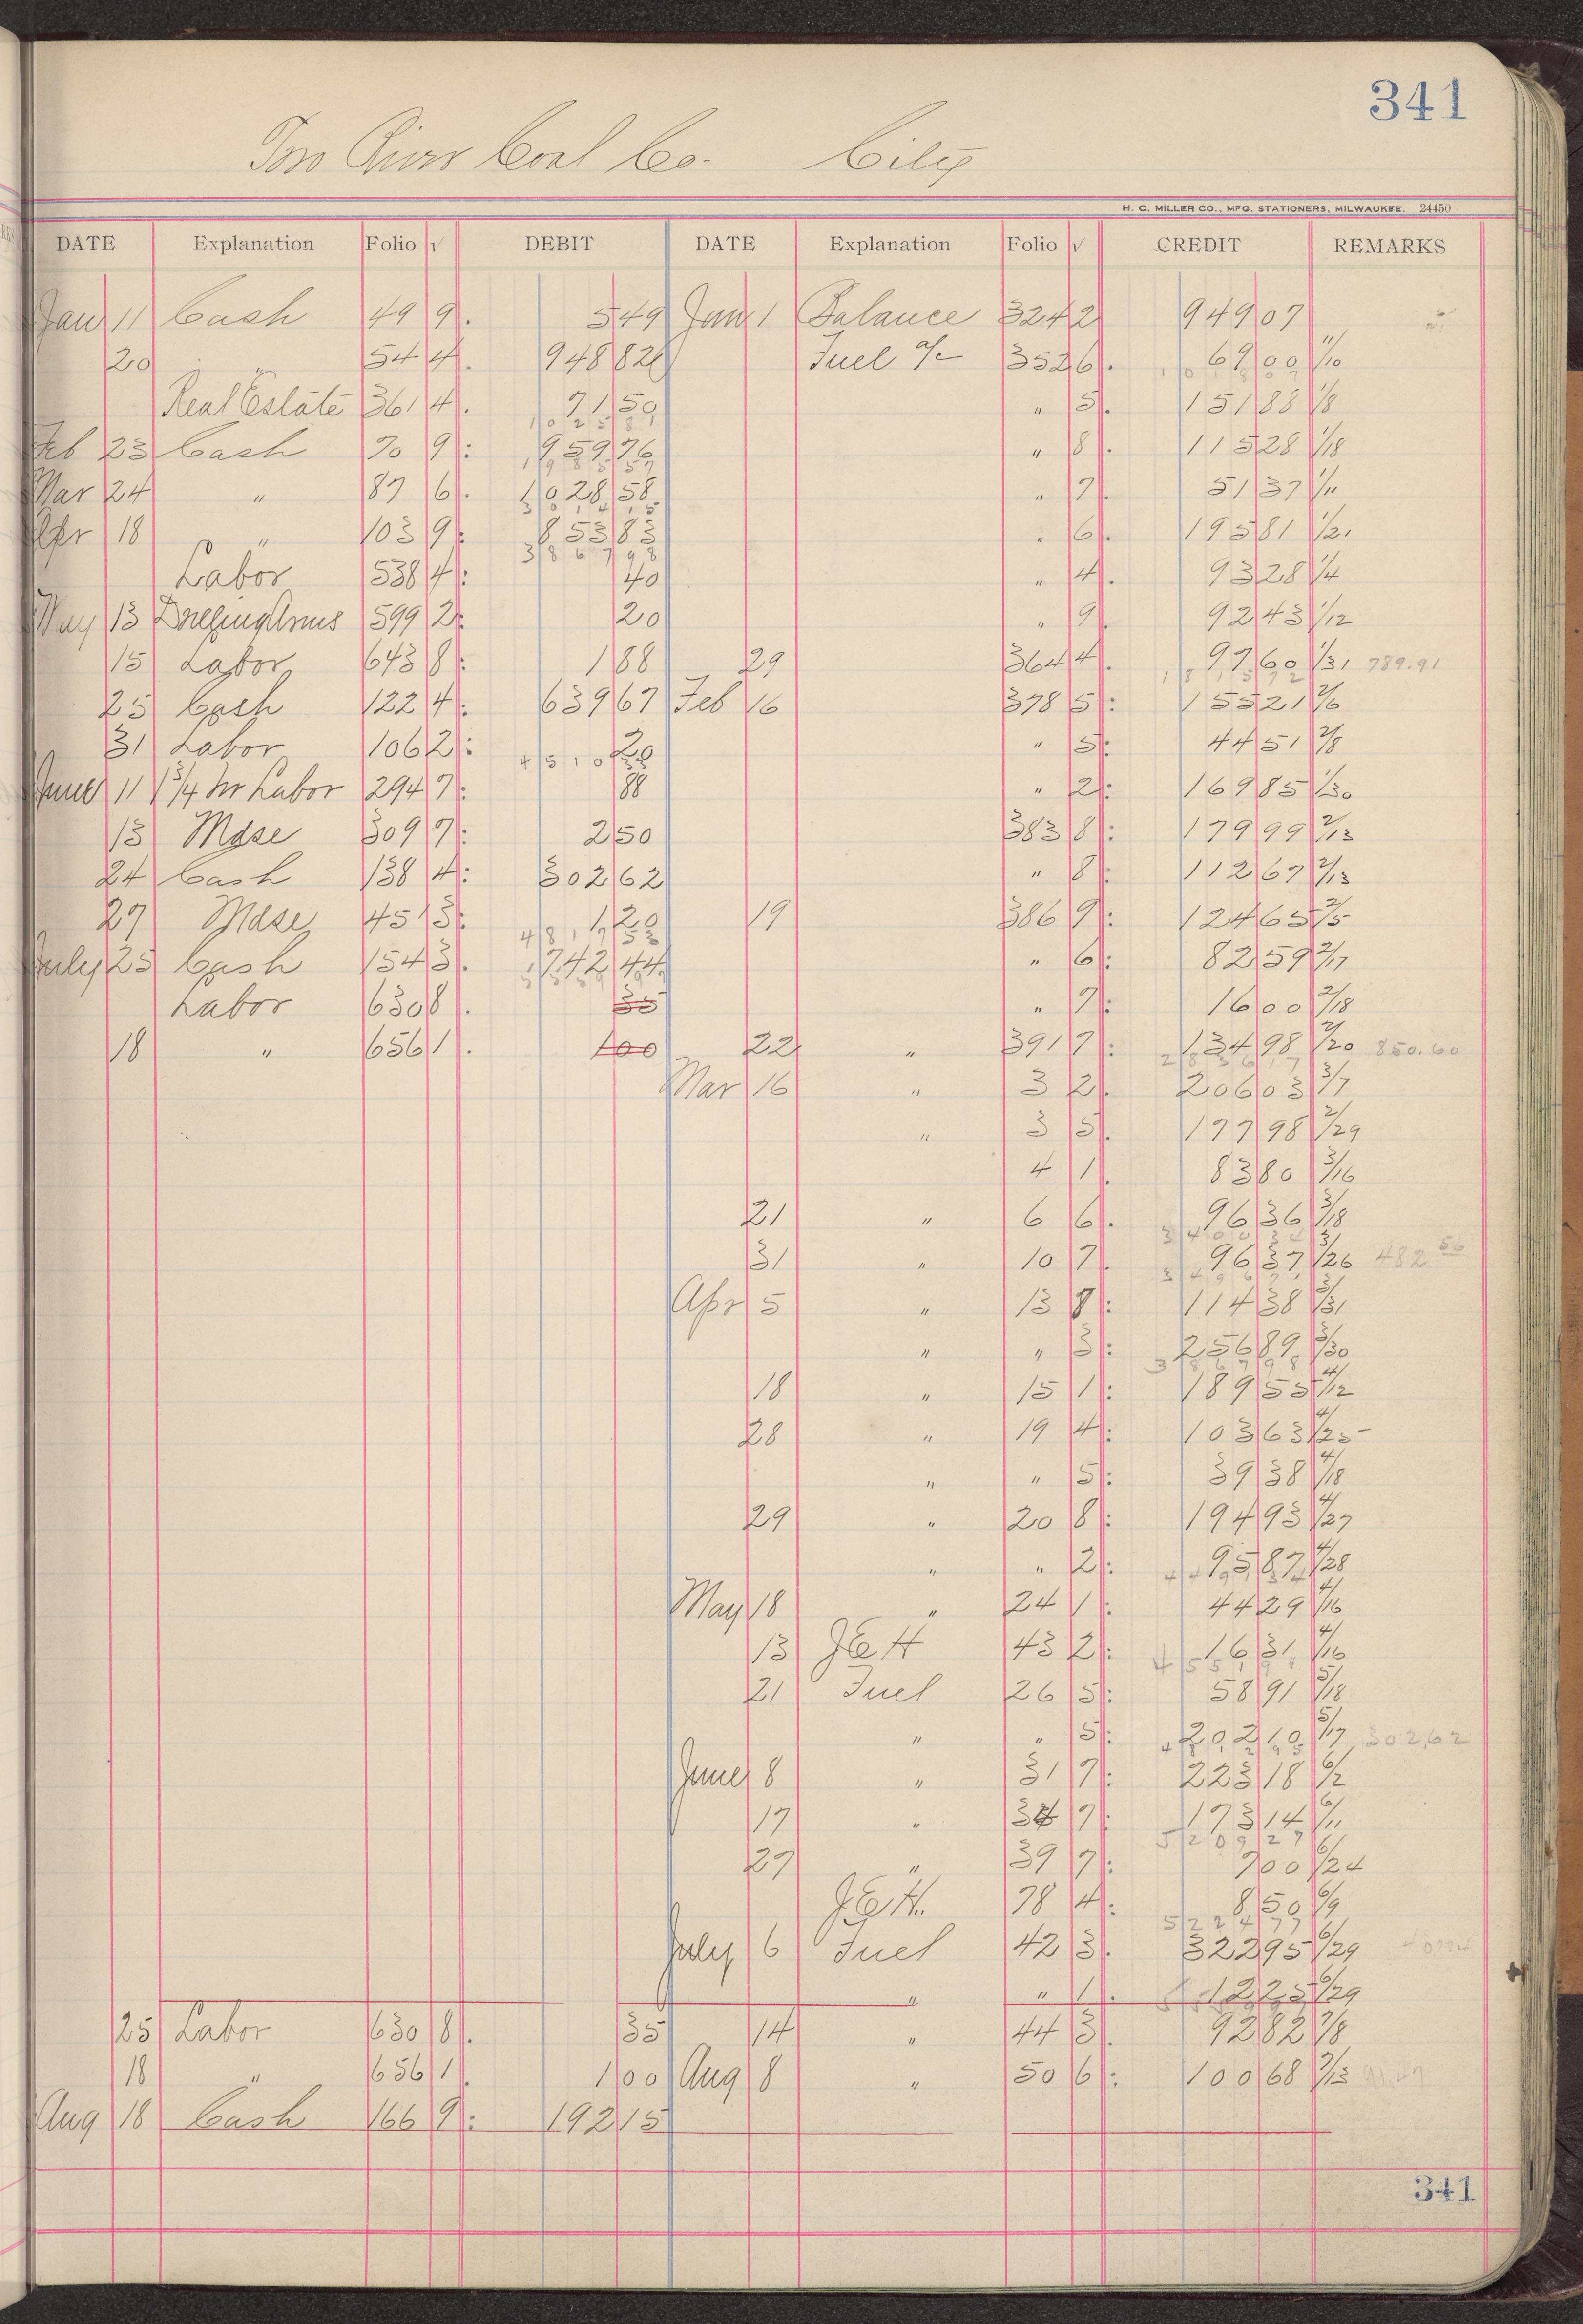 341
Two Rivers Coal Co. City
H. C. MILLER CO., MFG. STATIONERS, MILWAUKEE. 24450
DATE Explanation Folio √ DEBIT DATE Explanation Folio √ CREDIT REMARKS
Jan 11 Cash 49 9. 5 49 Jan 1 Balance 324 2 949 07
20 " 54 4. 948 82 Fuel a/c 352 6. 69 00 1/10
Real Estate 361 4. 71 50 " 5. 151 88 1/8
Feb 23 Cash 70 9: 959 76 " 8. 115 28 1/18
Mar 24 " 87 6. 1028 58 " 7. 51 37 1/11
Apr 18 " 103 9: 853 83 " 6. 195 81 1/21
Labor 538 4: 40 " 4. 93 28 1/4
May 13 599 2: 20 " 9. 92 43 1/12
15 Labor 643 8: 1 88 29 364 4. 97 60 1/31 789.91
25 Cash 122 4: 639 67 Feb 16 378 5: 155 21 2/6
31 Labor 106 2: 20 " 5: 44 51 2/8
June 11 1 3/4 hr Labor 294 7: 88 " 2: 169 85 1/30
13 Mdse 309 7: 2 50 383 8: 179 99 2/13
24 Cash 138 4: 302 62 " 8: 112 67 2/13
27 Mdse 451 3: 1 20 19 386 9: 124 65 2/5
July 25 Cash 154 3. 742 44 " 6: 82 59 2/17
Labor 630 8. 35 " 7: 16 00 2/18
18 " 656 1. 1 00 22 " 391 7: 134 98 2/20 850.60
Mar 16 " 3 2. 206 03 3/7
" 3 5. 177 98 2/29
4 1. 83 80 3/16
21 " 6 6. 96 36 3/18
31 " 10 7. 96 37 3/26 482 56
Apr 5 " 13 8: 114 38 3/31
" " 3: 256 89 3/30
18 " 15 1: 189 55 4/12
28 " 19 4: 103 63 4/25
" " 5: 39 38 4/18
29 " 20 8: 194 93 4/27
" " 2: 95 87 4/28
May 18 " 24 1: 44 29 4/16
13 J E H 43 2: 16 31 4/16
21 Fuel 26 5: 58 91 5/18
" " 5: 202 10 5/17 302.62
June 8 " 31 7: 223 18 6/2
17 " 34 7: 173 14 6/11
27 " 39 7: 7 00 6/24
J E H. 78 4: 8 50 6/9
July 6 Fuel 42 3. 322 95 6/29
" " 1. 12 25 6/29
25 Labor 630 8. 35 14 " 44 3. 92 82 7/8
18 " 656 1. 1 00 Aug 8 " 50 6: 100 68 7/13
Aug 18 Cash 166 9: 192 15
341